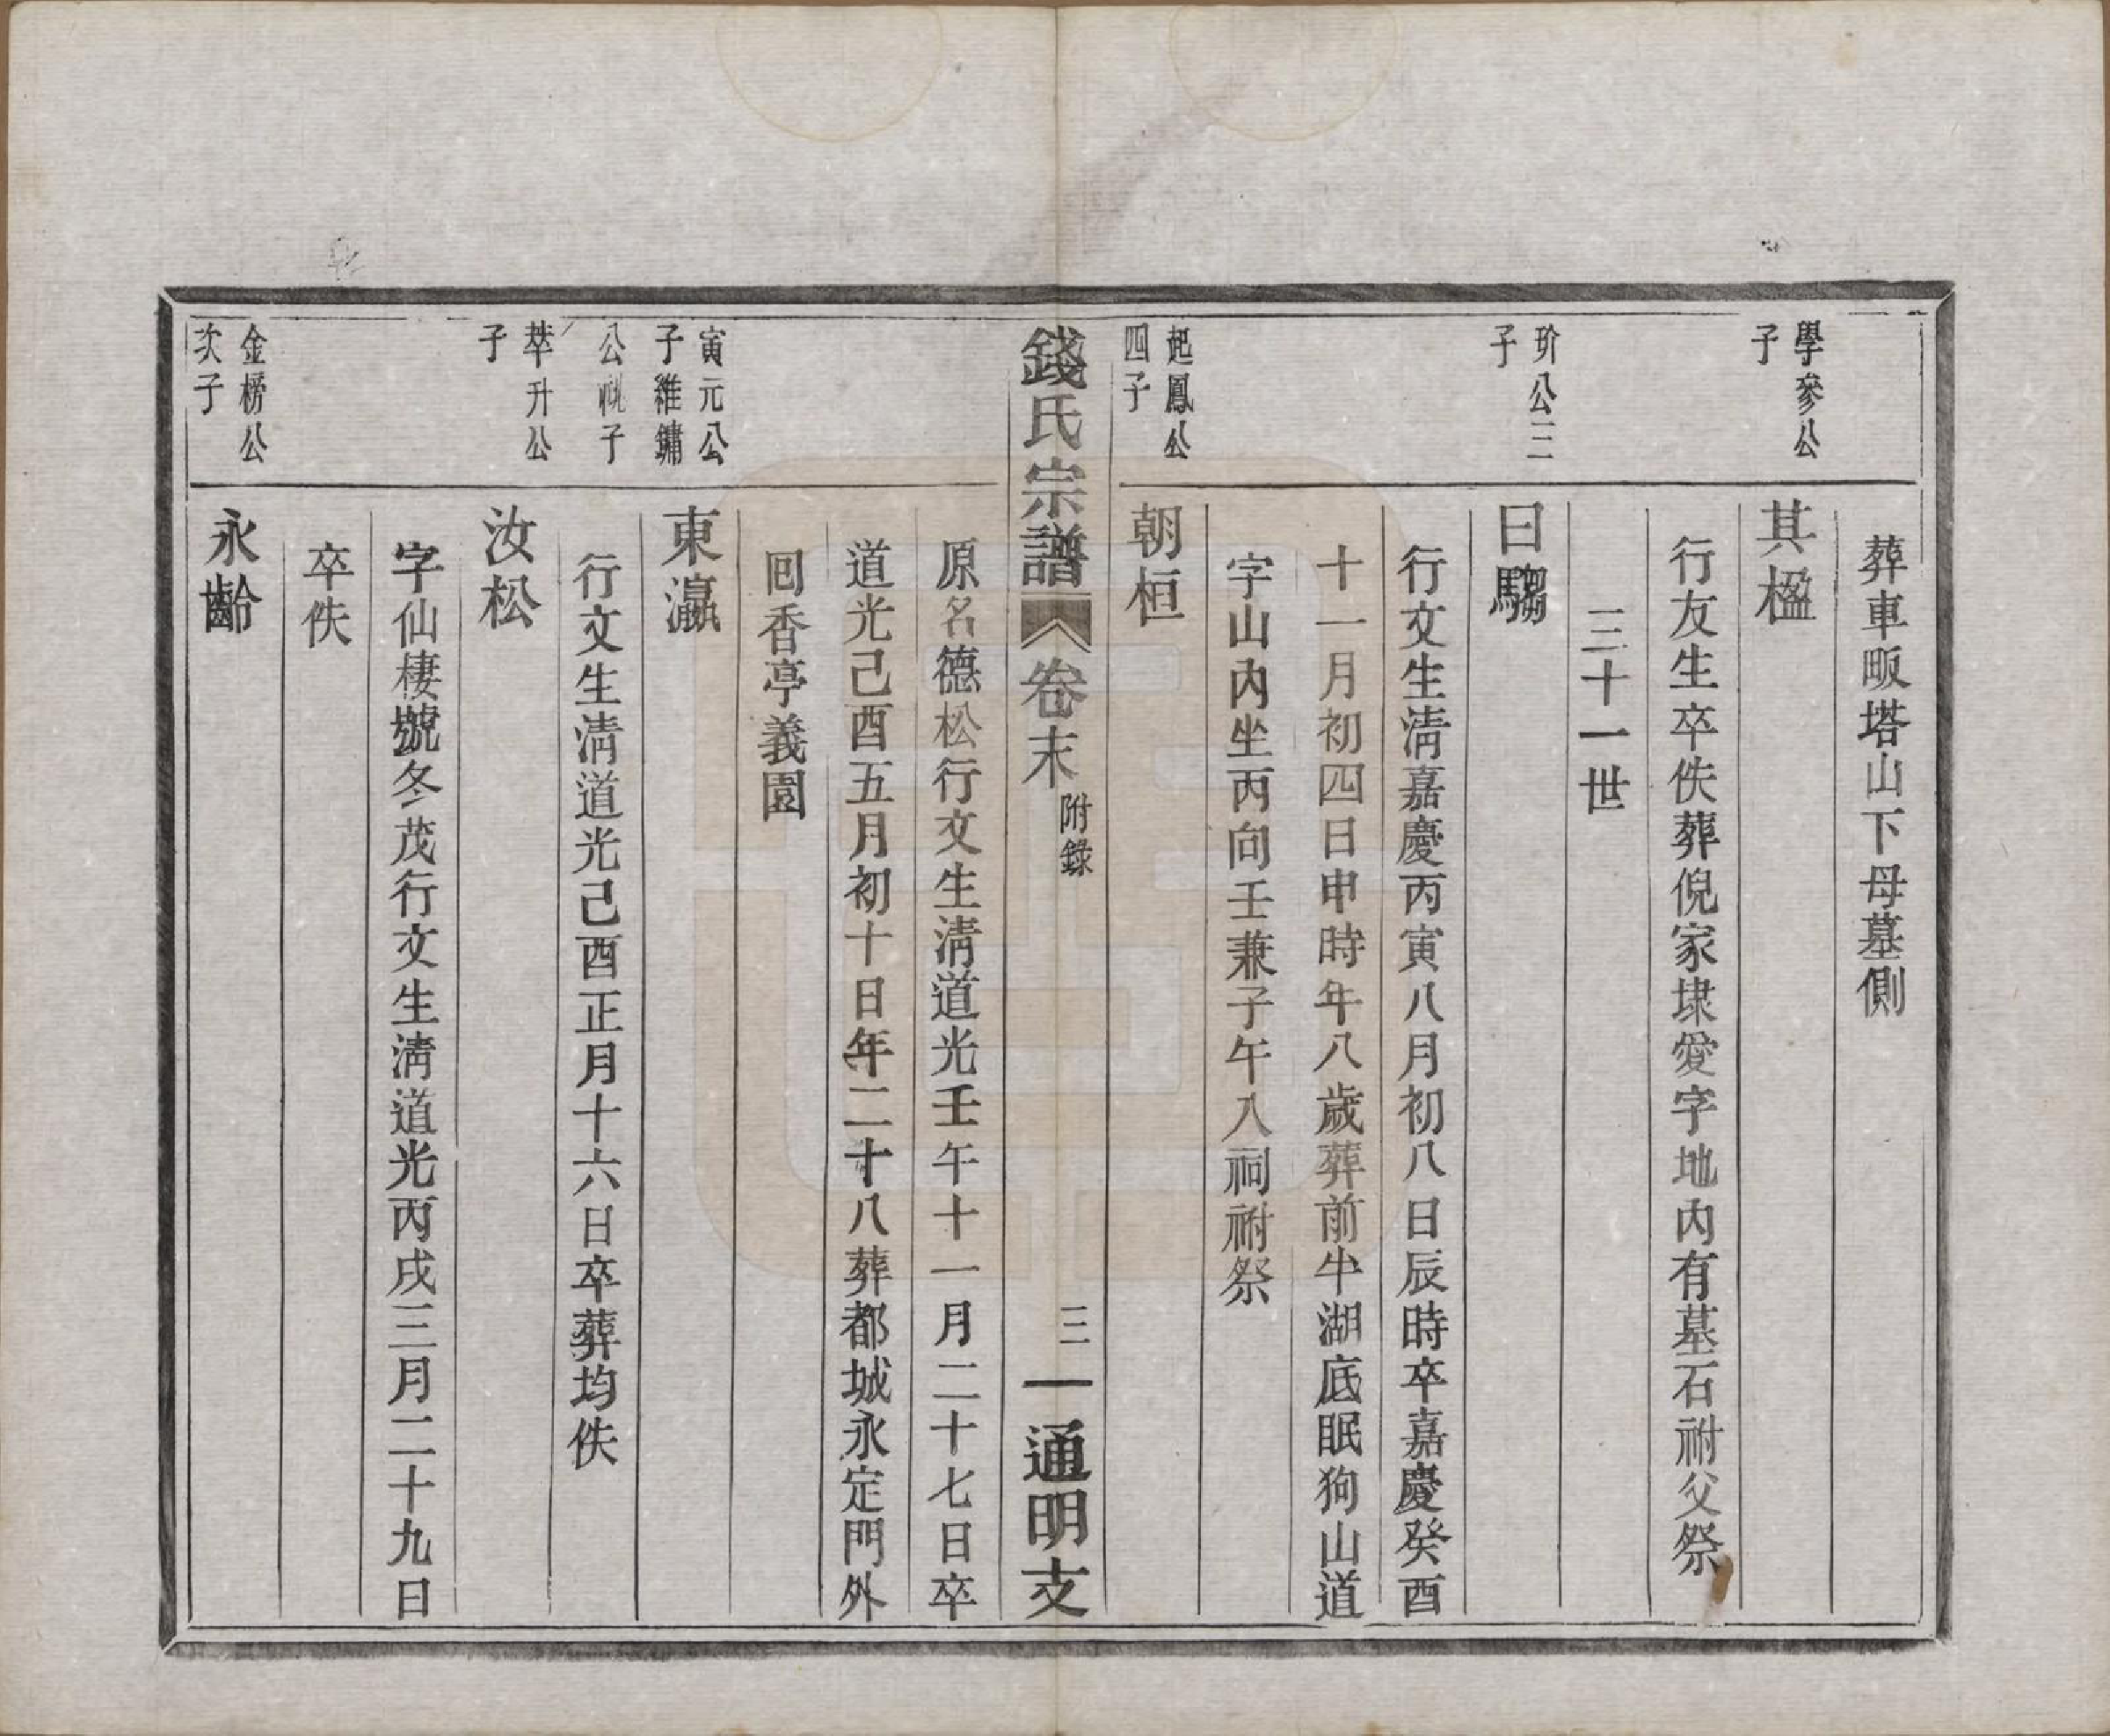 葬車畈塔山下母墓側
學參公
子
其楹
行友生卒佚葬倪家埭愛字地內有墓石祔父祭
三十一世
玠公三
子
曰騶
行文生淸嘉慶丙寅八月初八日辰時卒嘉慶癸酉
十一月初四日申時年八歲葬前牛湖底眠狗山道
字山內坐丙向壬兼子午入祠祔祭
起鳳公
四子
朝桓
錢氏宗譜 卷末 附錄 三 通明支
原名德松行文生淸道光壬午十一月二十七日卒
道光己酉五月初十日年二十八葬都城永定門外
囘香亭義園
寅元公
子維鏞
公祧子
東瀛
行文生淸道光己酉正月十六日卒葬均佚
萃升公
子
汝松
字仙棲號冬茂行文生淸道光丙戌三月二十九日
卒佚
金榜公
次子
永齡